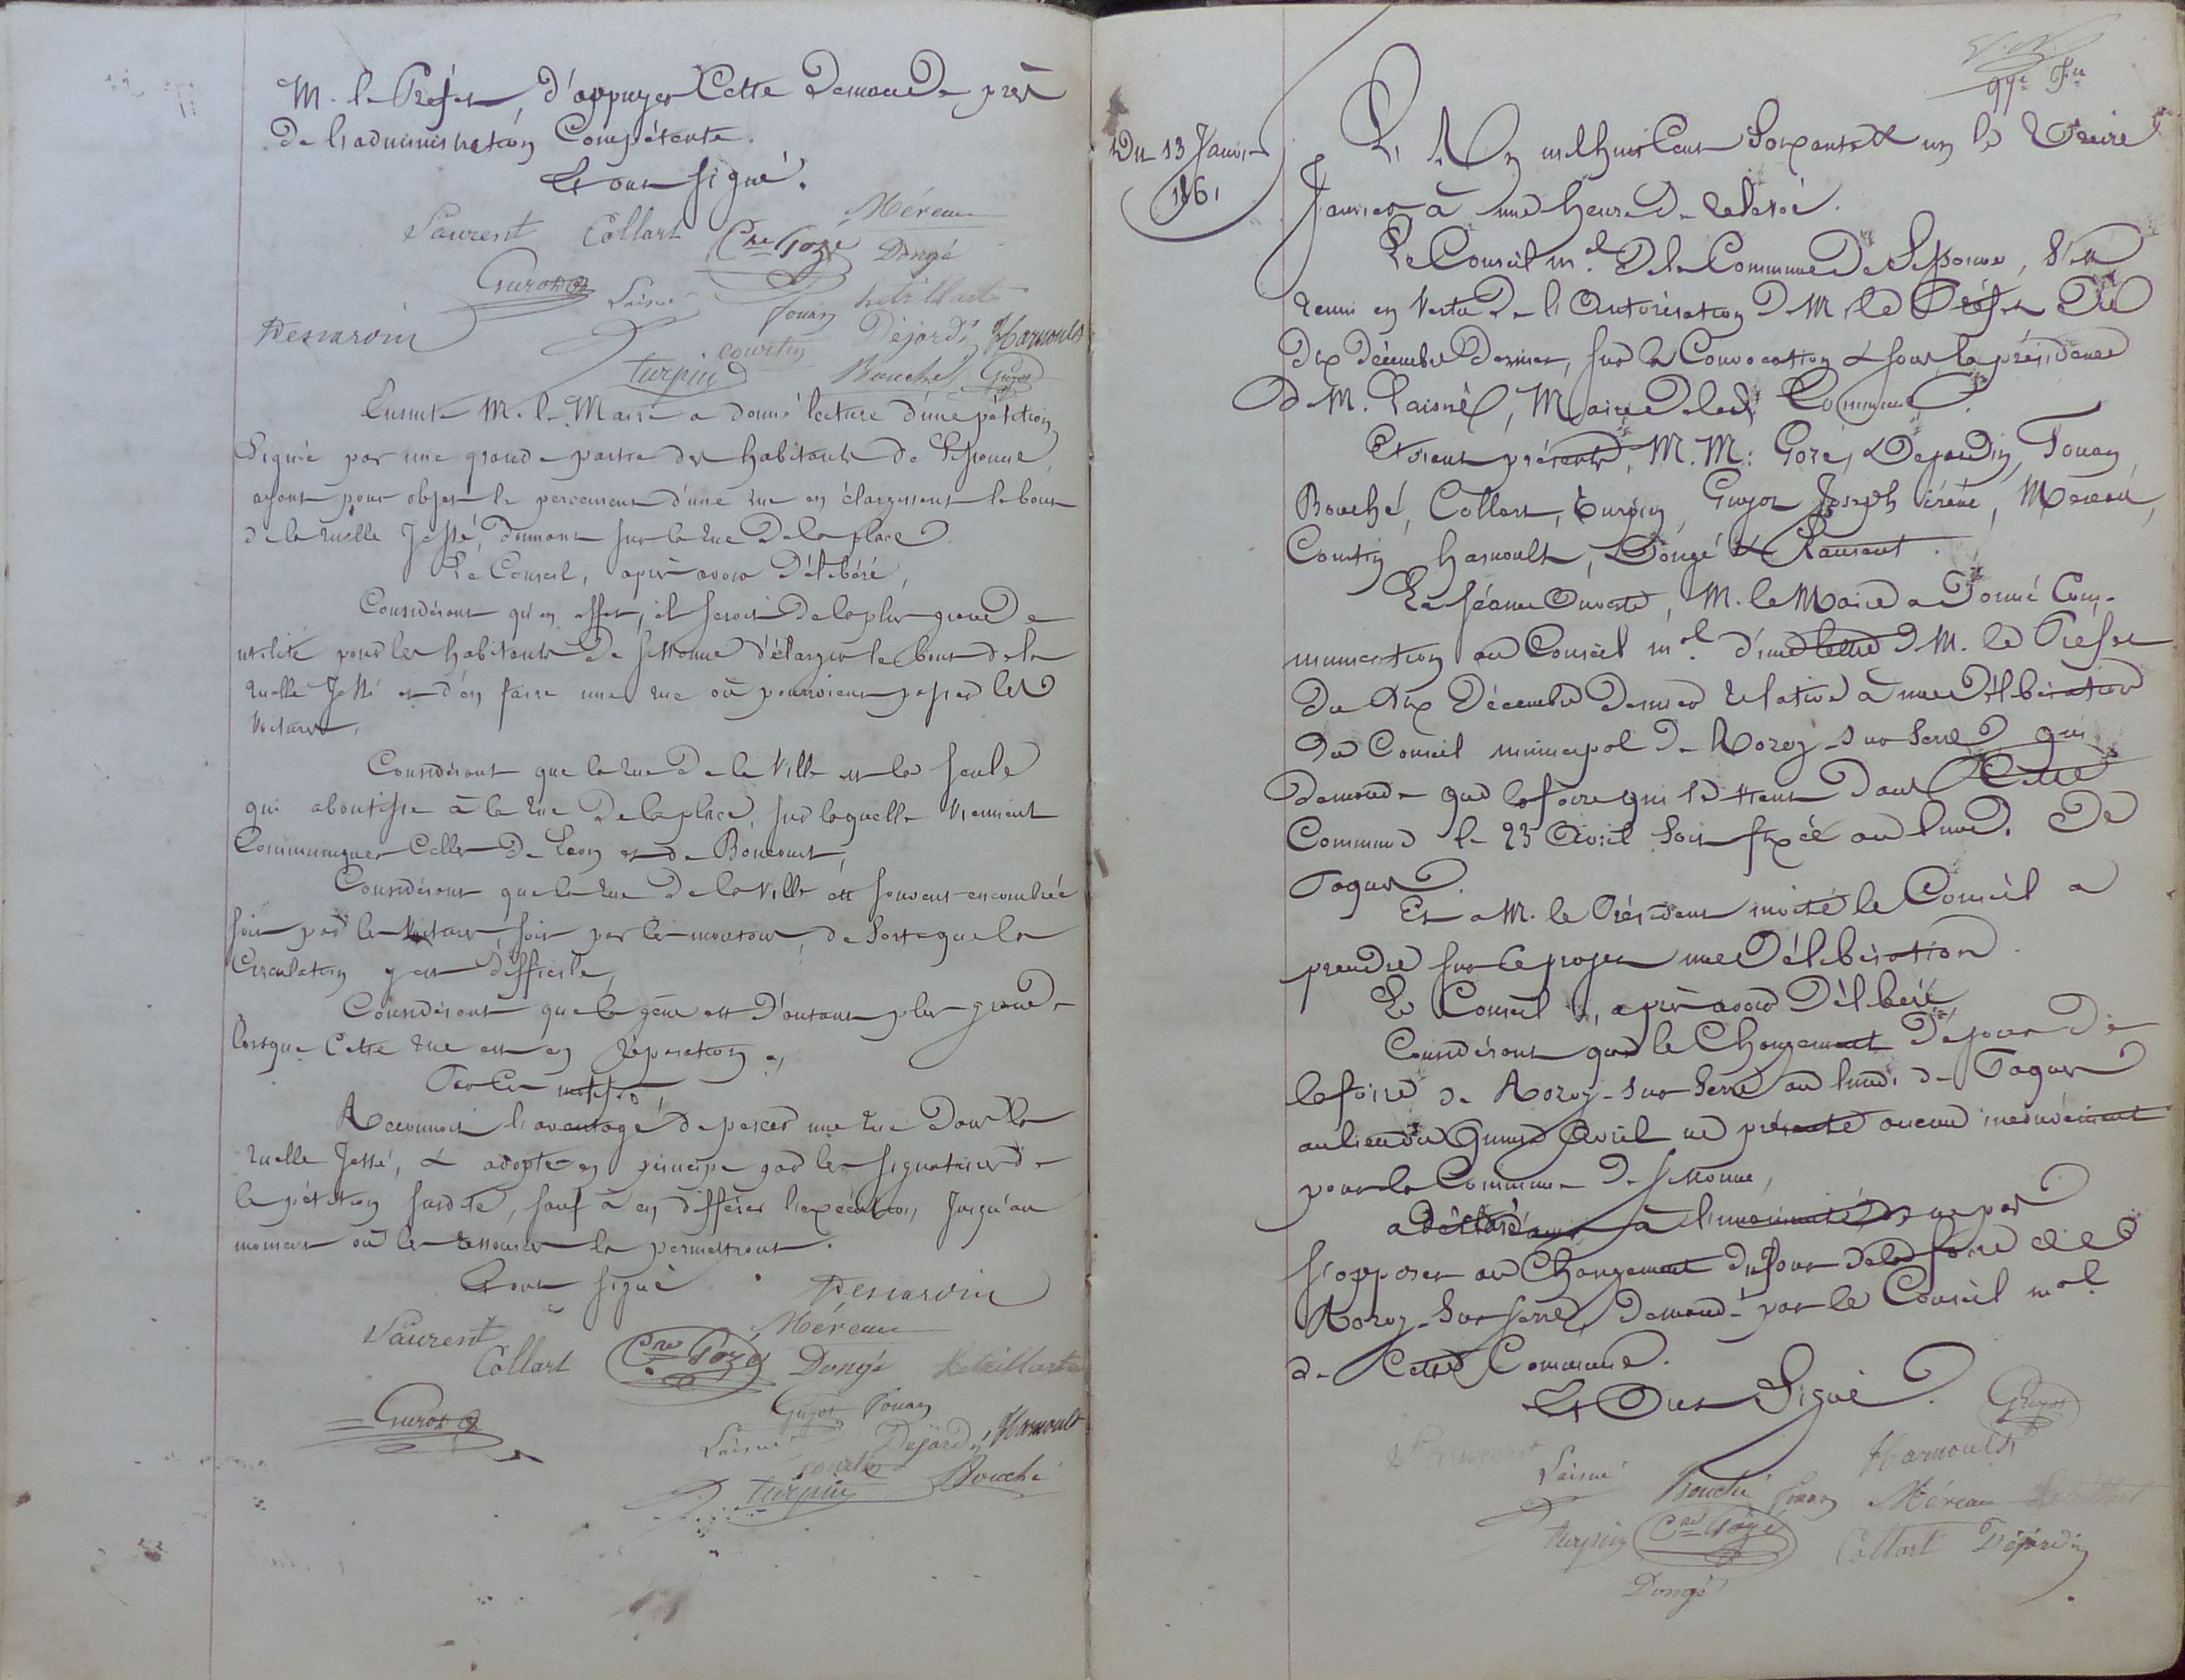 M. le Préfet, d'appuyer Cette Demande près
de l'administration Compétente.
Et ont signé.
Méreau
Laurent Collart Cre Gozé Dongé
Guyot Laisné Fouan Letellart
Demarvin Dejardin Harnoult
courtin
turpin Bouché Guyot
Ensuite M. le Maire a donné lecture d'une pétition
Signée par une grande partie des habitants de Sissonne,
ayant pour objet le percement d'une rue en élargissant le bout
de la ruelle Jessé, donnant sur la rue de la place.
Le Conseil, après avoir Délibéré,
Considérant qu'en effet, il serait de la plus grande
utilité pour les habitants de Sissonne d'élargir le bout de la
ruelle Jessé et d'en faire une rue où pourraient passer les
voitures,
Considérant que la rue de la Ville est la seule
qui aboutisse à la rue de la place, sur laquelle viennent
Communiquer Celles de Laon et de Boncourt,
Considérant que la rue de la Ville est souvent encombrée
soit par les voitures, soit par les moutons, de sorte que la
Circulation y est difficile,
Considérant que la gêne est d'autant plus grande
lorsque Cette rue est en réparation,
Par Ces motifs,
Reconnait l'avantage de percer une rue dans la
ruelle Jessé, & adopte en principe par les signataires de
la pétition susdite, sauf à en différer l'exécution, jusqu'au
moment où les ressources le permettront.
Et ont signé
Demarvin
Laurent Méreau
Collart Cre Gozé Dongé Letellart
Guyot Guyot Fouan
Laisné Dejardin Harnoult
courtin
turpin Bouché
97e Ft
Du 13 Janvier
1861
L'An mil huit Cent Soixante & un le Treize
Janvier à une heure de relevée.
Le Conseil mal De la Commune De Sissonne, s'est
réuni en vertu de l'Autorisation de M. le Préfet du
dix décembre dernier, sur la Convocation & sous la présidence
de M. Laisné, Maire de lad. Commune.
Etaient présents, M.M: Gozé, Dejardin, Fouan,
Bouché, Collart, Turpin, Guyot Joseph irénée, Mereau,
Courtin, Harnoult, Dongé & Laurent.
La séance Ouverte, M. le Maire a Donné Com-
munication au Conseil mal d'une lettre de M. le Préfet
du dix Décembre Dernier relative à une délibération
du Conseil municipal de Rozoy-sur-Serre qui
demande que la foire qui se tient dans Cette
Commune le 23 Avril soit fixée au lundi de
Pâques.
Et a M. le Président invité le Conseil a
prendre sur Ce projet une Délibération.
Le Conseil, après avoir Délibéré,
Considérant que le Changement de jour de
la foire de Rozoy-sur-Serre au lundi de Pâques
au lieu du Avril ne présente aucun inconvénient
pour la Commune de Sissonne,
a déclaré à l'unanimité ne pas
s'opposer au Changement du jour de la foire de
Rozoy-sur-Serre, demandé par le Conseil mal
de Cette Commune.
Et Ont Signé.
Guyot
Laurent Laisné Harnoult
Bouché Fouan Méreau Letellart
turpin Cre Gozé Collart Dejardin
Dongé